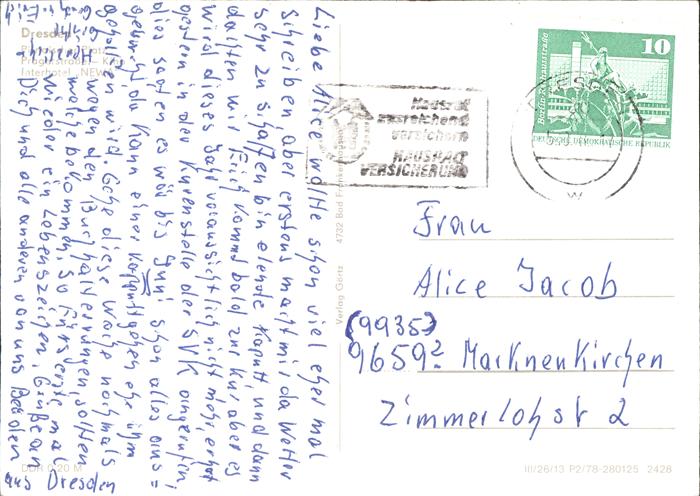 Liebe Alice, wollte schon viel eher mal
Schreiben aber erstens macht mir da Wetter
sehr zu schaffen bin elende Kaputt, und dann
dachten wir Erich kommt bald zur Kur aber es
wird dieses Jahr voraussichtlich nicht mehr, er hat
gestern in der Kurenstelle der SVK angerufen,
dies sagten es wär bis Juni schon alles aus=
gebucht, da kann einer kaputtgehen ehe ihm
geholfen wird. Gehe diese Woche nochmals
wegen den Buchhalterinnen, sollten
welche bekommen. So für's erste mal
wieder ein Lebenszeichen. Grüße an
Dich und alle anderen von uns Beiden
aus Dresden
Herzlich
Erich
Dresden
Prager Straße
Interhotel „NEWA"
DDR 0,20 M
Verlag Görtz
4732 Bad Frankenhausen
Hausrat
ausreichend
versichern
HAUSHALT
VERSICHERUNG
DRESDEN
Berlin, Rathausstraße
10
DEUTSCHE DEMOKRATISCHE REPUBLIK
Frau
Alice Jacob
(9935)
9659? Marknenkirchen
Zimmerlohst 2
III/26/13 P2/78-280125 2428